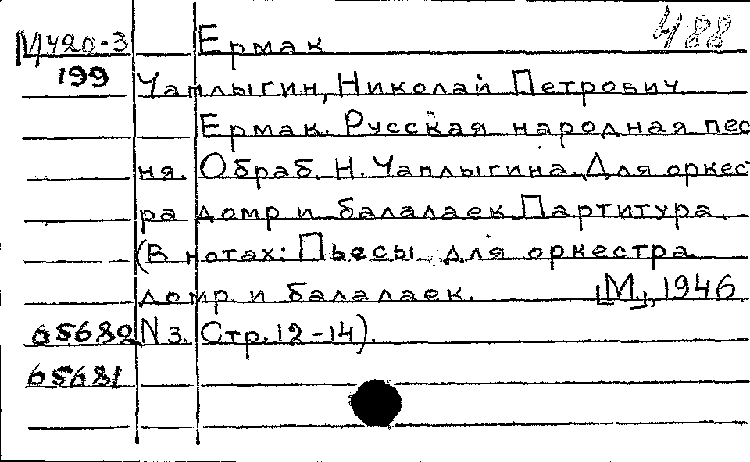 М420-3 Ермак 488
199 Чаплыгин, Николай Петрович
Ермак. Русская народная пес
ня. Обраб. Н. Чаплыгина. Для оркес
ра домр и балалаек. Партитура.
(В нотах: Пьесы для оркестра
домр и балалаек. [М.], 1946
65682 N 3. Стр. 12-14).
65681